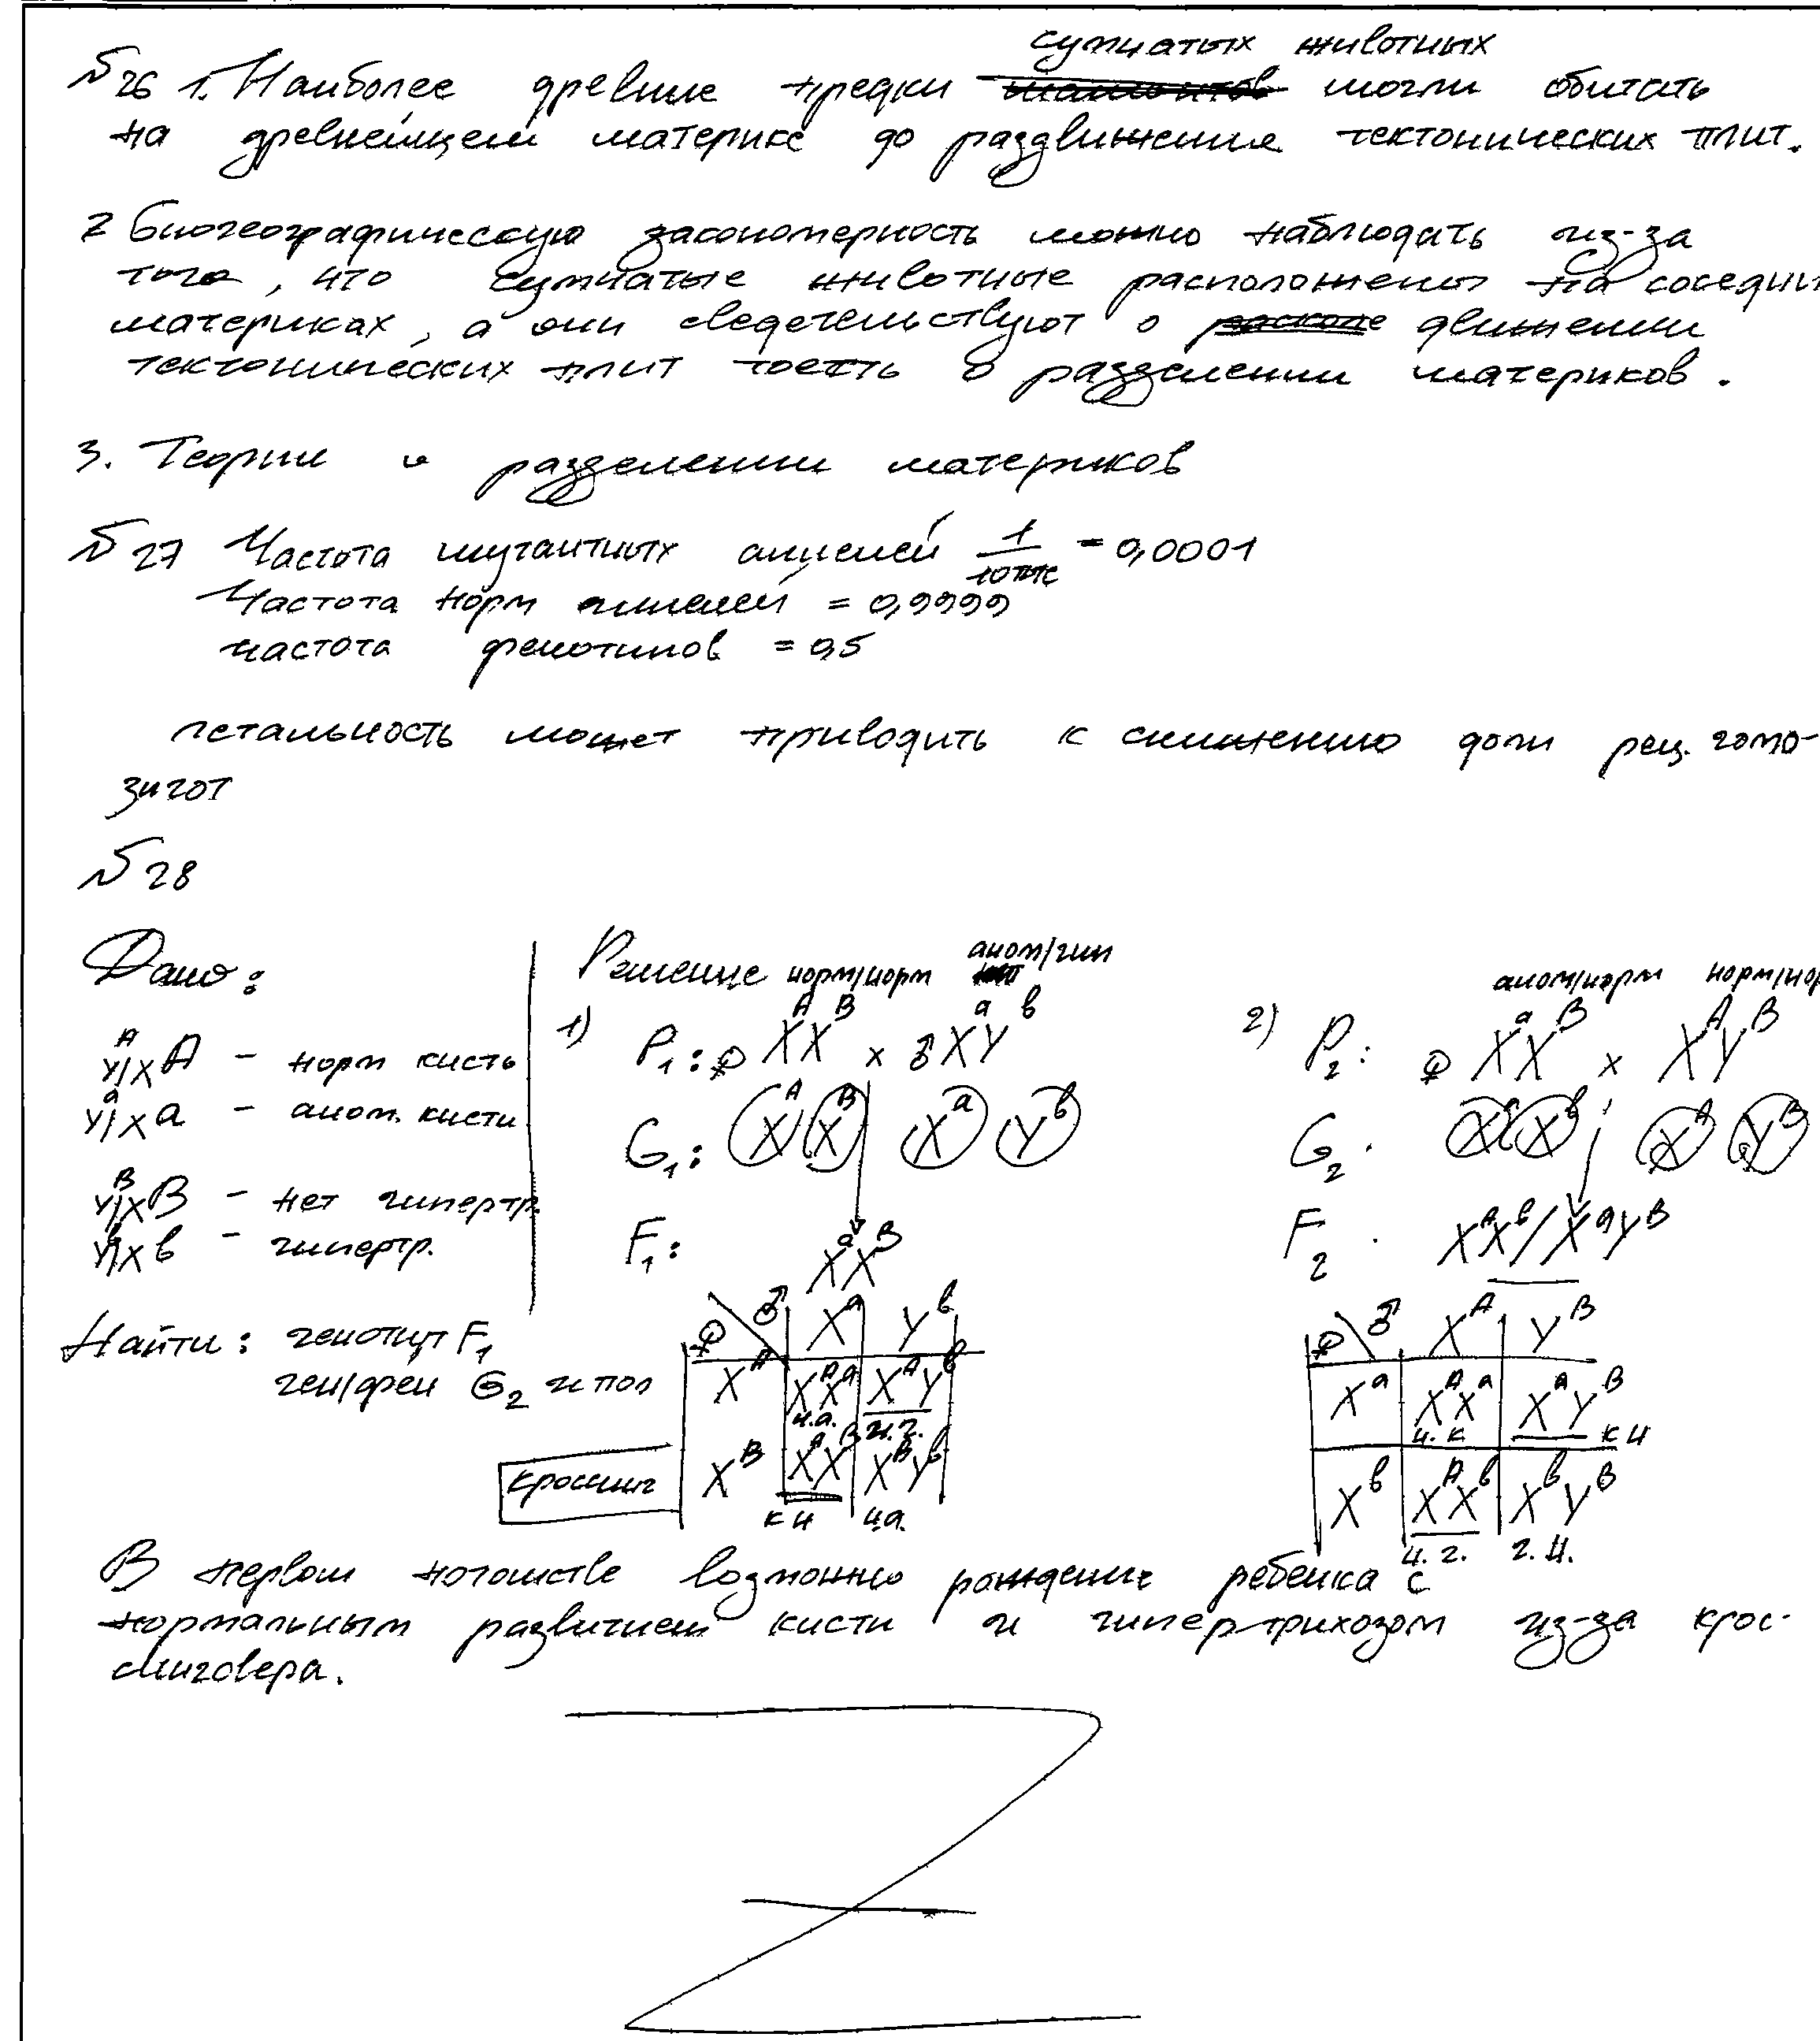 сумчатых животных
№26 1. Наиболее древние предки могли обитать
на древнейщем материке до раздвижения тектонических плит.
2 Биогеографическую закономерность можно наблюдать из-за
того, что сумчатые животные расположены на соседних
материках, а они сведетельствуют о движении
тектонических плит тоесть о разделении материков.
3. Теории о разделении материков
№27 Частота мутантных аллелей 1/10тыс = 0,0001
Частота норм аллелей = 0,9999
частота фенотипов = 0,5
летальность может приводить к снижению доли рец. гомо-
зигот
№28
Дано:
Y^A/X^A - норм кисть
Y^a/X^a - аном. кисти
Y^B/X^B - нет гипертр.
Y^b/X^b - гипертр.
Найти: генотип F1
ген/фен G2 и пол
Решение норм/норм аном/гип
1) P1: ♀ X^A X^B x ♂ X^a Y^b
G1: X^A X^B X^a Y^b
F1: X^a X^B
♀ ♂ X^a Y^b
X^A X^A X^a X^A Y^b
н.а. н.г.
X^B X^A X^B X^B Y^b
кн н.а.
кроссинг
аном/норм норм/нор
2) P2: ♀ X^a X^B x X^A Y^B
G2. X^b X^A Y^B
F2. X^A X^b / X^a Y^B
♀ ♂ X^A Y^B
X^a X^A X^a X^A Y^B
н.к. кн
X^b X^A X^b X^b Y^B
н.г. г.н.
В первом потомстве возможно рождение ребенка с
нормальным развитием кисти и гипертрихозом из-за крос-
синговера.
Z